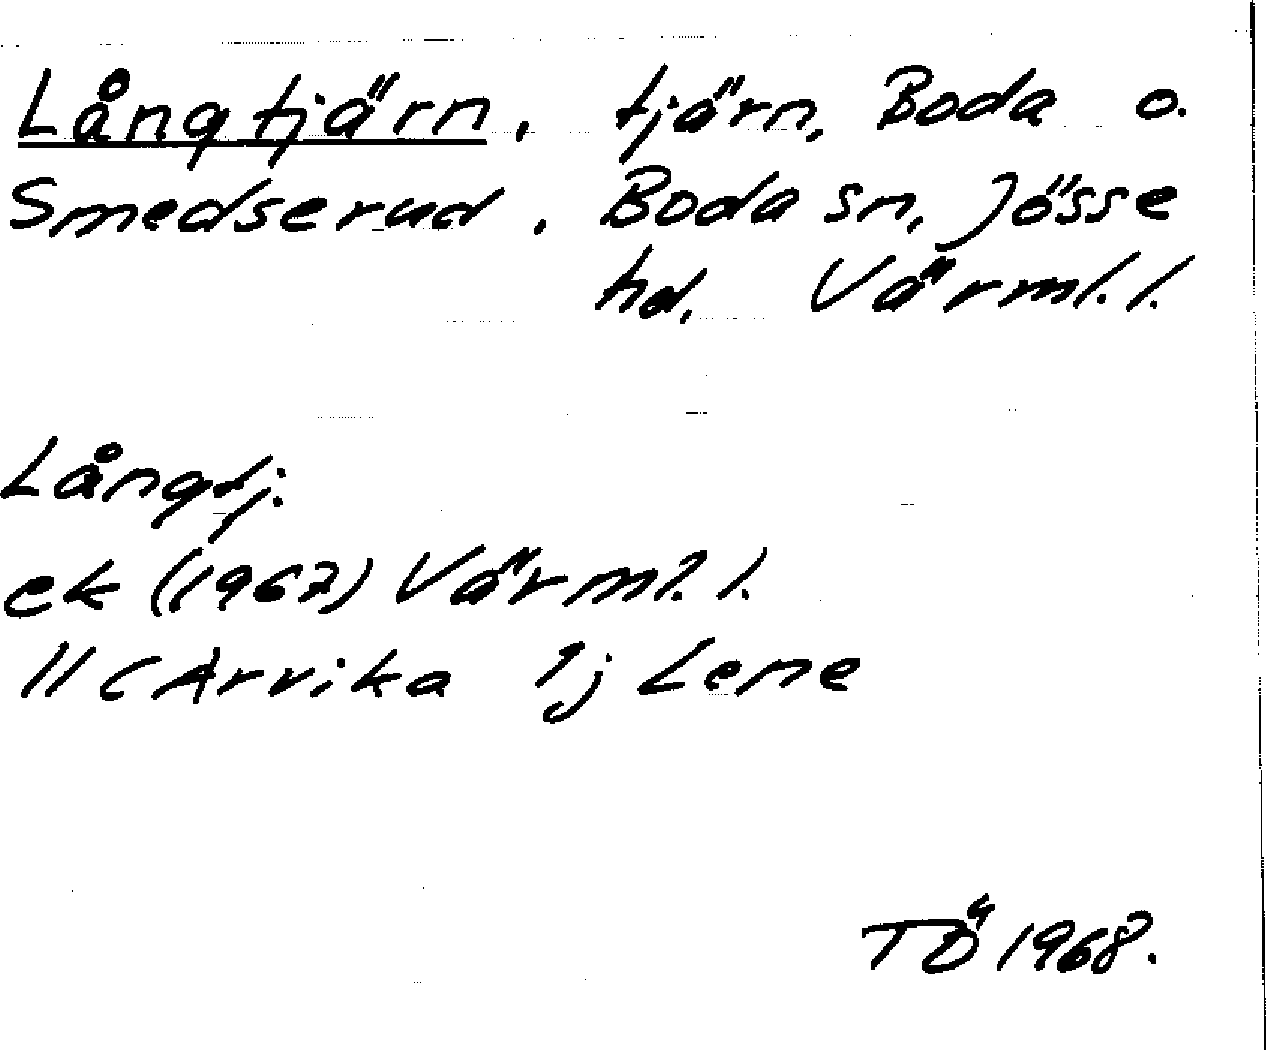 Långtjärn, tjärn, Boda o.
Smedserud, Boda sn, Jösse
hd, Värml. l.
Långtj:
ek (1967) Värml. l.
11 C Arvika 1j Lene
TÖ 1968.